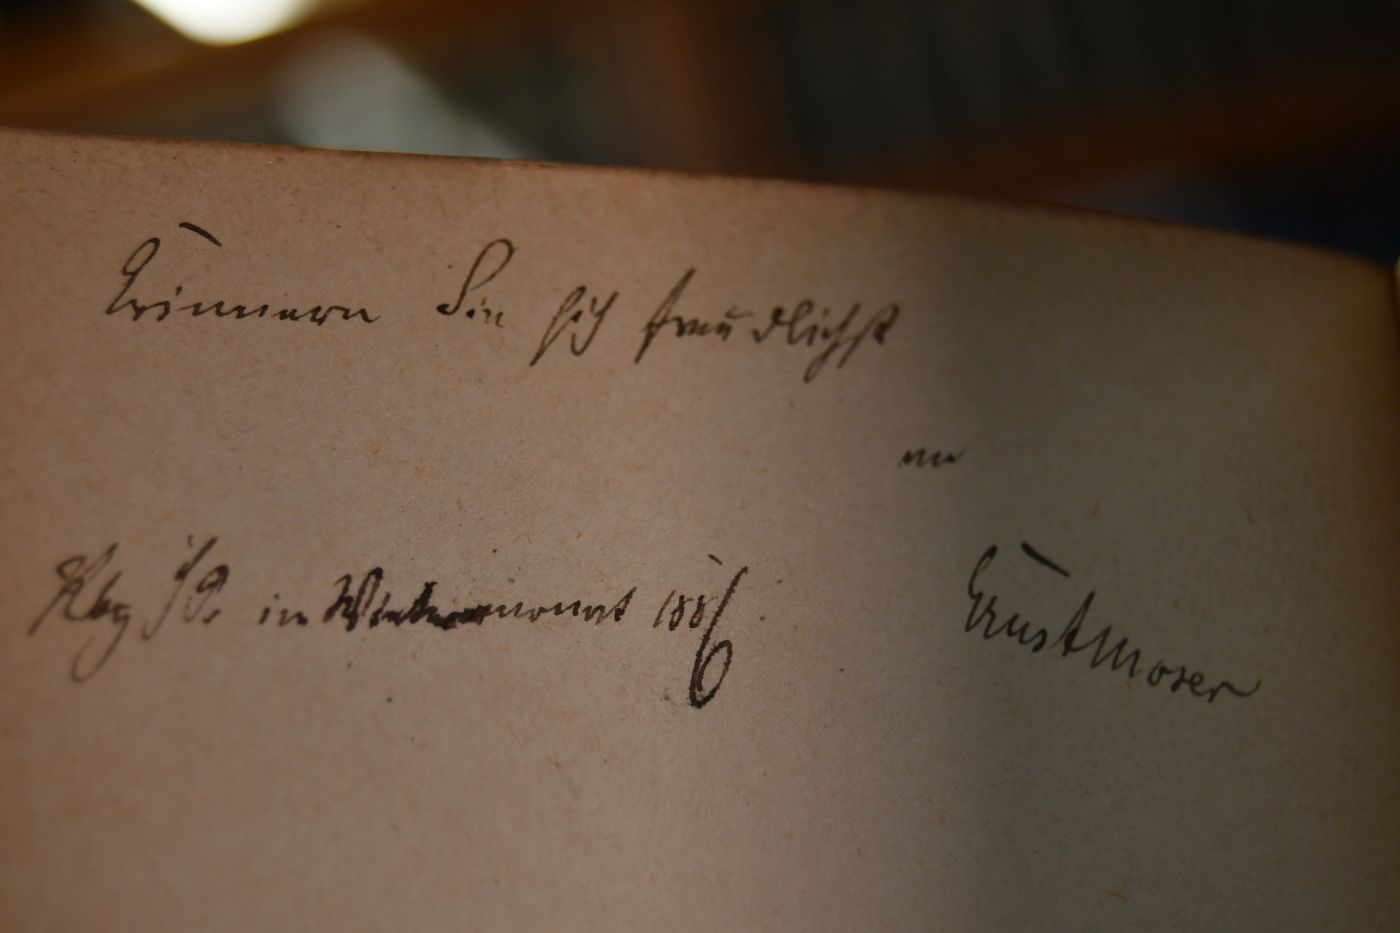 Erinnern Sie sich freudlichst
an
Ernst Moser
Kbg i/Pr. im Wintermonat 1886